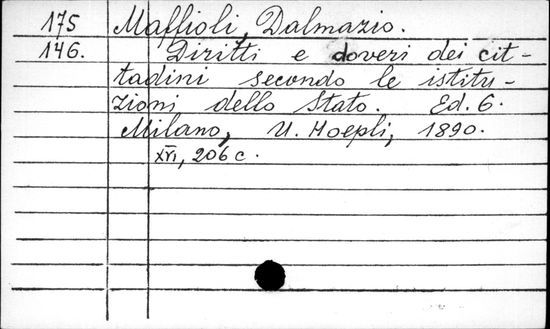 175 Maffioli, Dalmazio.
146. Diritti e doveri dei cit-
tadini secondo le istitu-
zioni dello Stato. Ed. 6.
Milano, U. Hoepli, 1890.
XVI, 206 c.